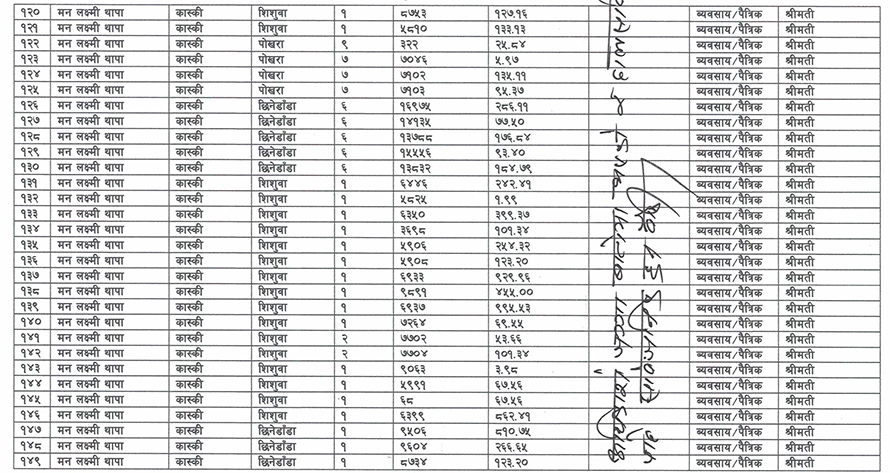 १२० मन लक्ष्मी थापा कास्की शिशुवा १ ८७५३ १२७.१६ ब्यवसाय/पैत्रिक श्रीमती
१२१ मन लक्ष्मी थापा कास्की शिशुवा १ ५८१० १३३.१३ ब्यवसाय/पैत्रिक श्रीमती
१२२ मन लक्ष्मी थापा कास्की पोखरा ९ ३२२ २५.८४ ब्यवसाय/पैत्रिक श्रीमती
१२३ मन लक्ष्मी थापा कास्की पोखरा ७ ७०४६ ५.९७ ब्यवसाय/पैत्रिक श्रीमती
१२४ मन लक्ष्मी थापा कास्की पोखरा ७ ७१०२ १३५.११ ब्यवसाय/पैत्रिक श्रीमती
१२५ मन लक्ष्मी थापा कास्की पोखरा ७ ७१०३ ९५.३७ ब्यवसाय/पैत्रिक श्रीमती
१२६ मन लक्ष्मी थापा कास्की छिनेडाँडा ६ १६९७५ २८६.११ ब्यवसाय/पैत्रिक श्रीमती
१२७ मन लक्ष्मी थापा कास्की छिनेडाँडा ६ १४१३५ ७७.५० ब्यवसाय/पैत्रिक श्रीमती
१२८ मन लक्ष्मी थापा कास्की छिनेडाँडा ६ १३७८८ १७६.८४ ब्यवसाय/पैत्रिक श्रीमती
१२९ मन लक्ष्मी थापा कास्की छिनेडाँडा ६ १५५५६ ९३.४० ब्यवसाय/पैत्रिक श्रीमती
१३० मन लक्ष्मी थापा कास्की छिनेडाँडा ६ १३८३२ १८४.७९ ब्यवसाय/पैत्रिक श्रीमती
१३१ मन लक्ष्मी थापा कास्की शिशुवा १ ६४४६ २४२.४१ ब्यवसाय/पैत्रिक श्रीमती
१३२ मन लक्ष्मी थापा कास्की शिशुवा १ ५८२५ १.९९ ब्यवसाय/पैत्रिक श्रीमती
१३३ मन लक्ष्मी थापा कास्की शिशुवा १ ६३५० ३९९.३७ ब्यवसाय/पैत्रिक श्रीमती
१३४ मन लक्ष्मी थापा कास्की शिशुवा १ ३६९८ १०१.३४ ब्यवसाय/पैत्रिक श्रीमती
१३५ मन लक्ष्मी थापा कास्की शिशुवा १ ५९०६ २५४.३२ ब्यवसाय/पैत्रिक श्रीमती
१३६ मन लक्ष्मी थापा कास्की शिशुवा १ ५९०८ १२३.२० ब्यवसाय/पैत्रिक श्रीमती
१३७ मन लक्ष्मी थापा कास्की शिशुवा १ ६९३३ ९२९.९६ ब्यवसाय/पैत्रिक श्रीमती
१३८ मन लक्ष्मी थापा कास्की शिशुवा १ ९८९१ ४५५.०० ब्यवसाय/पैत्रिक श्रीमती
१३९ मन लक्ष्मी थापा कास्की शिशुवा १ ६९३७ ९९५.५३ ब्यवसाय/पैत्रिक श्रीमती
१४० मन लक्ष्मी थापा कास्की शिशुवा १ ७२६४ ६९.५५ ब्यवसाय/पैत्रिक श्रीमती
१४१ मन लक्ष्मी थापा कास्की शिशुवा २ ७७०२ ५३.६६ ब्यवसाय/पैत्रिक श्रीमती
१४२ मन लक्ष्मी थापा कास्की शिशुवा २ ७७०४ १०१.३४ ब्यवसाय/पैत्रिक श्रीमती
१४३ मन लक्ष्मी थापा कास्की शिशुवा १ ९०६३ ३.९८ ब्यवसाय/पैत्रिक श्रीमती
१४४ मन लक्ष्मी थापा कास्की शिशुवा १ ५९९१ ६७.५६ ब्यवसाय/पैत्रिक श्रीमती
१४५ मन लक्ष्मी थापा कास्की शिशुवा १ ६८ ६७.५६ ब्यवसाय/पैत्रिक श्रीमती
१४६ मन लक्ष्मी थापा कास्की शिशुवा १ ६३९९ ८६२.४१ ब्यवसाय/पैत्रिक श्रीमती
१४७ मन लक्ष्मी थापा कास्की छिनेडाँडा १ ९५०६ ८१०.७५ ब्यवसाय/पैत्रिक श्रीमती
१४८ मन लक्ष्मी थापा कास्की छिनेडाँडा १ ९६०४ २६६.६५ ब्यवसाय/पैत्रिक श्रीमती
१४९ मन लक्ष्मी थापा कास्की छिनेडाँडा १ ८७३४ १२३.२० ब्यवसाय/पैत्रिक श्रीमती